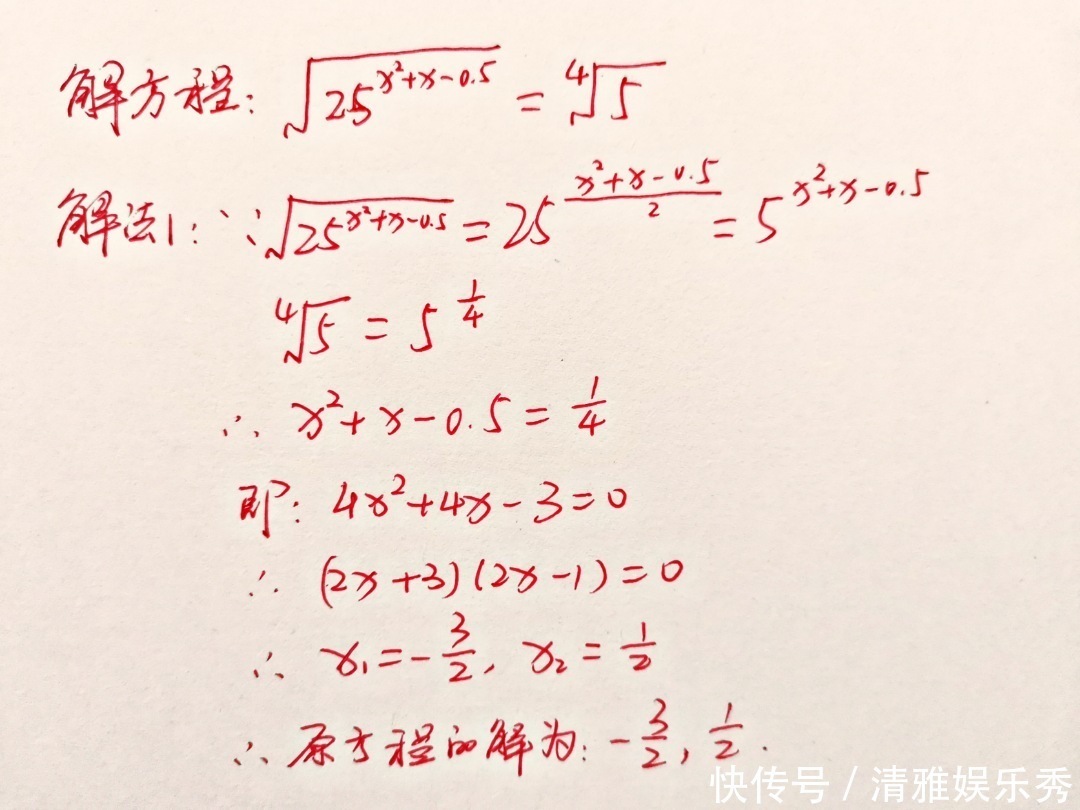 解方程: √(25^(x²+x-0.5)) = ⁴√5
解法1: ∵ √(25^(x²+x-0.5)) = 25^((x²+x-0.5)/2) = 5^(x²+x-0.5)
⁴√5 = 5^(1/4)
∴ x²+x-0.5 = 1/4
即: 4x²+4x-3=0
∴ (2x+3)(2x-1)=0
∴ x₁=-3/2, x₂=1/2
∴ 原方程的解为: -3/2, 1/2.
快传号 / 清雅娱乐秀